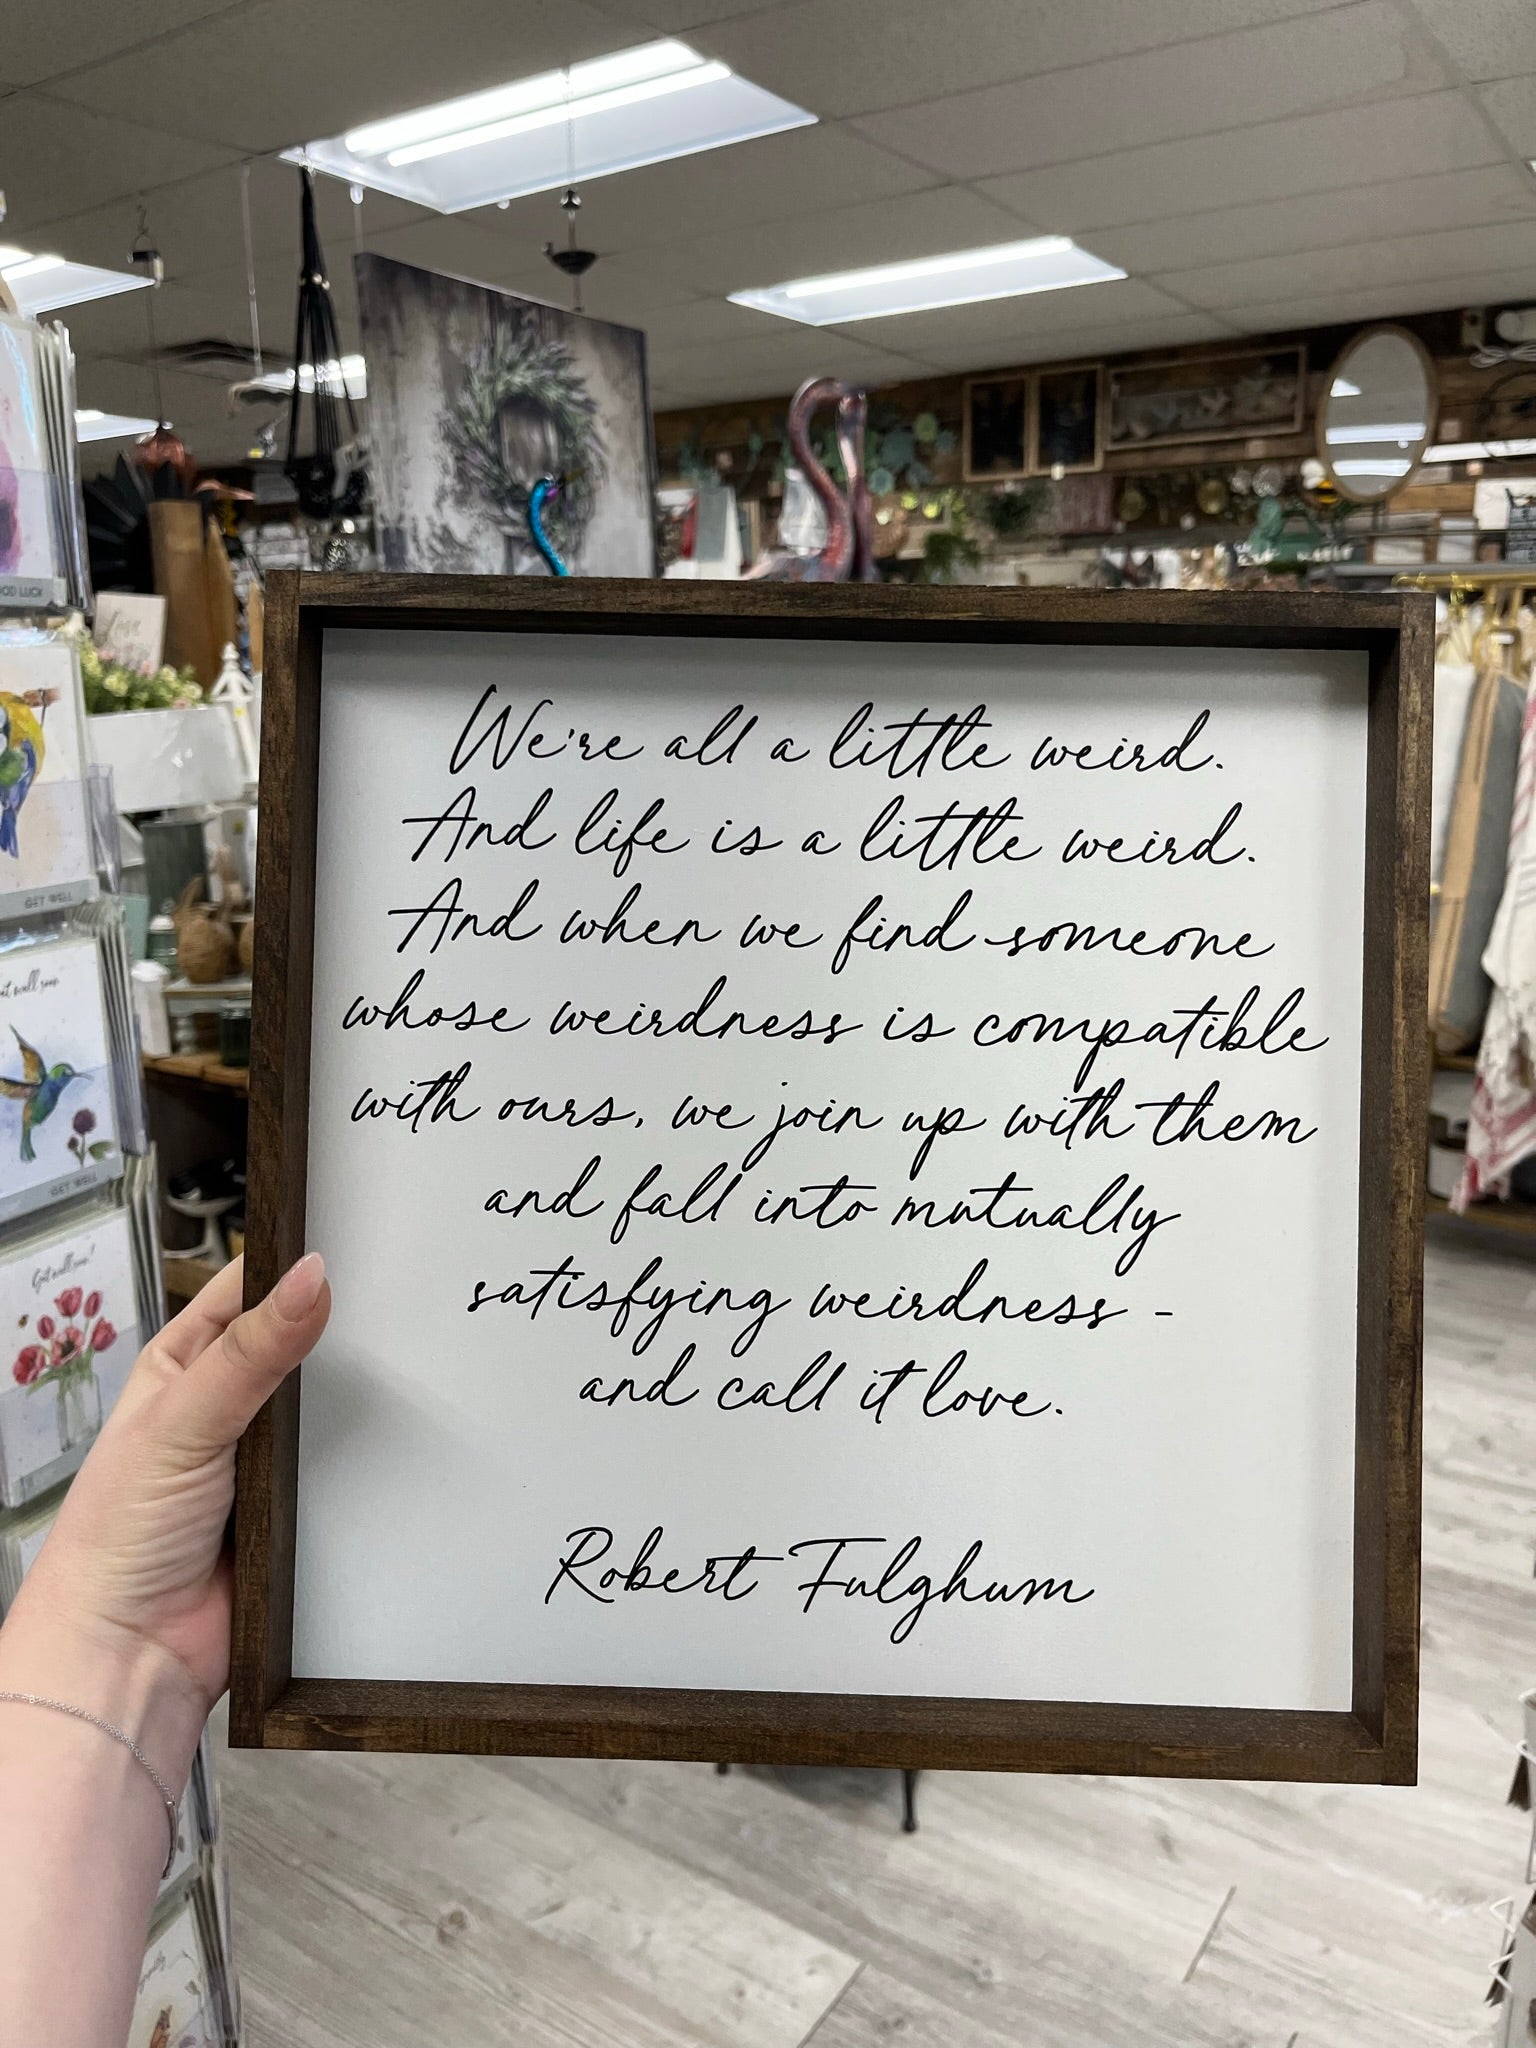 We're all a little weird.
And life is a little weird.
And when we find someone
whose weirdness is compatible
with ours, we join up with them
and fall into mutually
satisfying weirdness -
and call it love.
Robert Fulghum
LUCK
GET WELL
well soon
GET WELL
Get well soon!